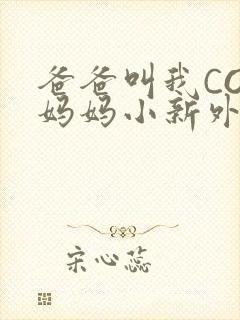 爸爸叫我CO
妈妈小新外
宋心蕊